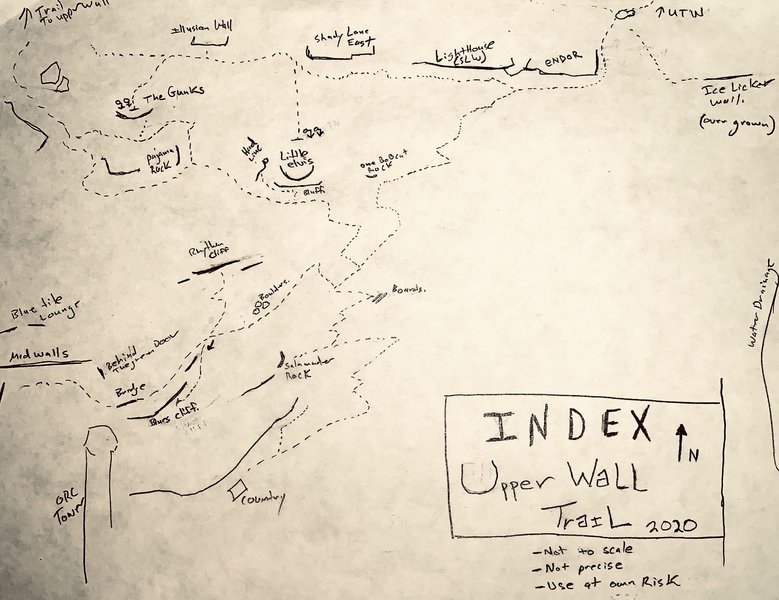 Trail
To upperwall
Illusion Wall
Shady Lane
East
LightHouse
(SLW)
ENDOR
↑UTW
Ice Licker
wall.
(overgrown)
The Gunks
pajama
Rock
Head
Line
Little
elvis
Bluff.
one Docent
Rock
Rhythm
cliff
Boulders.
Boards.
Blue tile
Lounge
Mid walls
Behind
The green Door
Bridge
Blues cliff.
Salamander
Rock
ORC
Tower
Country
Water Drainage
INDEX
↑N
Upper Wall
Trail 2020
-Not to scale
-Not precise
-Use at own Risk